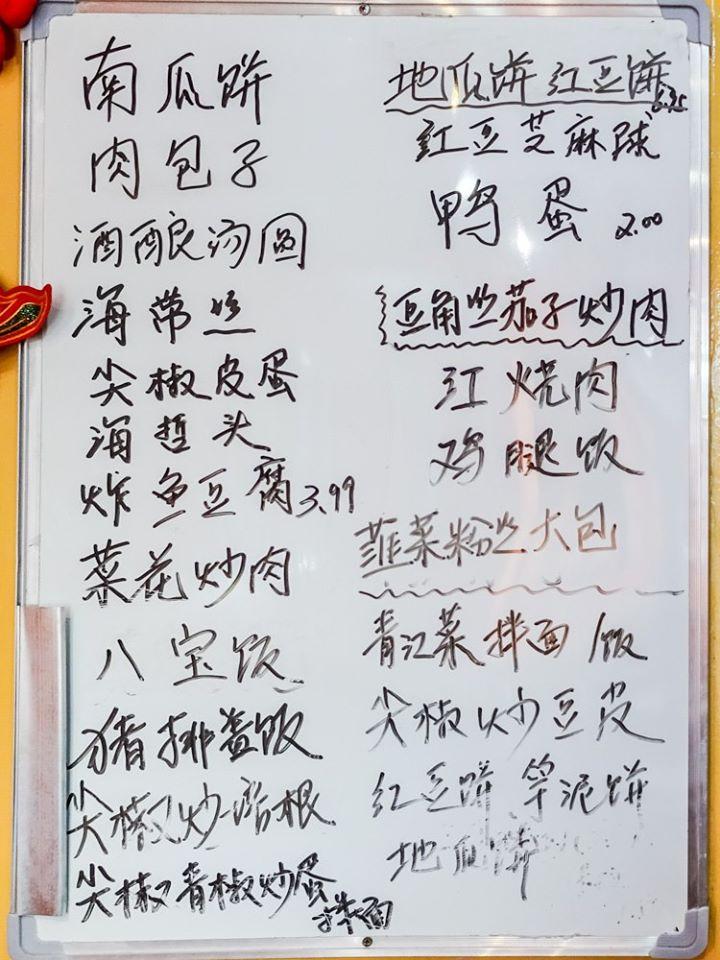 南瓜饼
肉包子
酒酿汤圆
海带丝
尖椒皮蛋
海哲头
炸鱼豆腐 3.99
菜花炒肉
八宝饭
猪排盖饭
尖椒炒
尖椒青椒炒蛋
拌面
地瓜饼 红豆饼
红豆芝麻球
鸭蛋 2.00
豆角丝茄子炒肉
红烧肉
鸡腿饭
韭菜粉丝大包
青江菜拌面/饭
尖椒炒豆皮
红豆饼 芋泥饼
地瓜饼